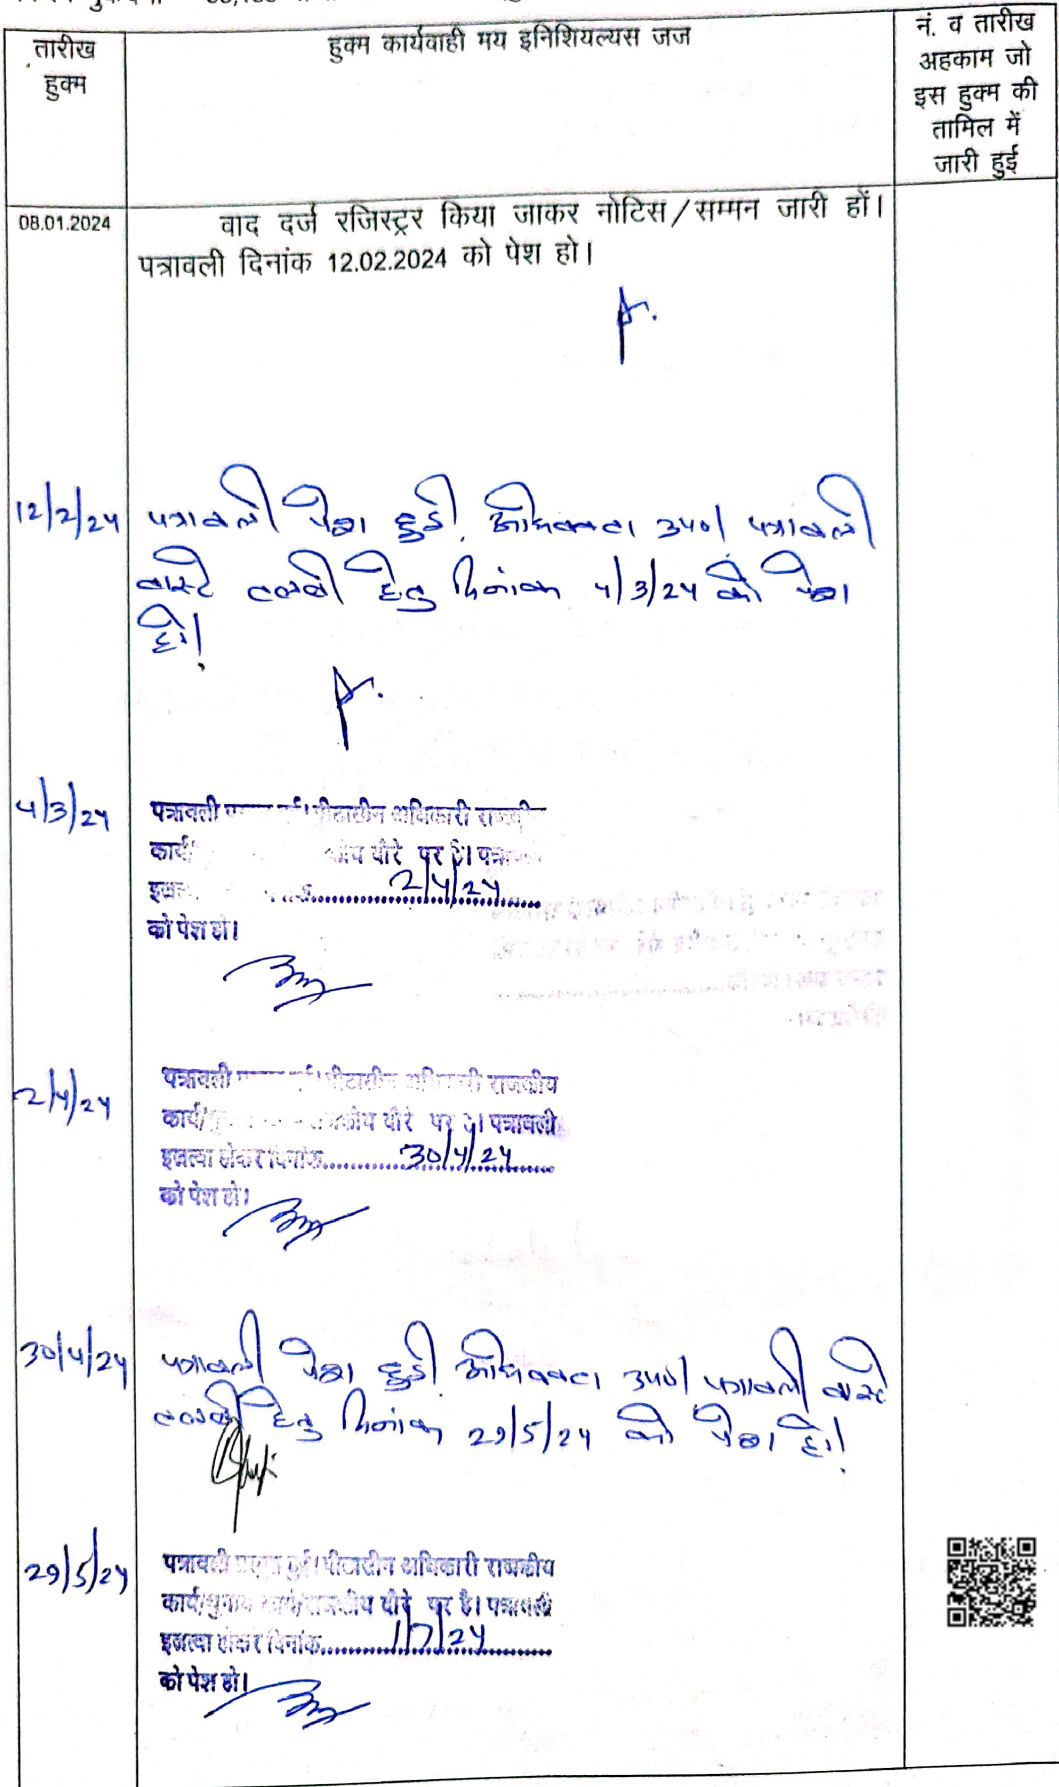 तारीख
हुक्म
हुक्म कार्यवाही मय इनिशियल्यस जज
नं. व तारीख
अहकाम जो
इस हुक्म की
तामिल में
जारी हुई
08.01.2024
वाद दर्ज रजिस्ट्रर किया जाकर नोटिस/सम्मन जारी हों।
पत्रावली दिनांक 12.02.2024 को पेश हो।
12/2/24 पत्रावली पेश हुई, अधिवक्ता उप०। पत्रावली
वास्ते तलबी हेतु दिनांक 4/3/24 को पेश
हो।
4/3/24
पत्रावली पीठासीन अधिकारी
कार्य/ दौरे पर है।
2/4/24
को पेश हो।
2/4/24
पत्रावली पीठासीन राजकीय
कार्य/ दौरे पर है। पत्रावली
इजत्वा होकर दिनांक 30/4/24
को पेश हो।
30/4/24 पत्रावली पेश हुई। अधिवक्ता उप०। पत्रावली वास्ते
तलबी हेतु दिनांक 29/5/24 को पेश हो।
29/5/24
पत्रावली हुई। पीठासीन अधिकारी राजकीय
कार्य/चुनाव कार्य/राजकीय दौरे पर है। पत्रावली
इजत्वा होकर दिनांक 1/7/24
को पेश हो।